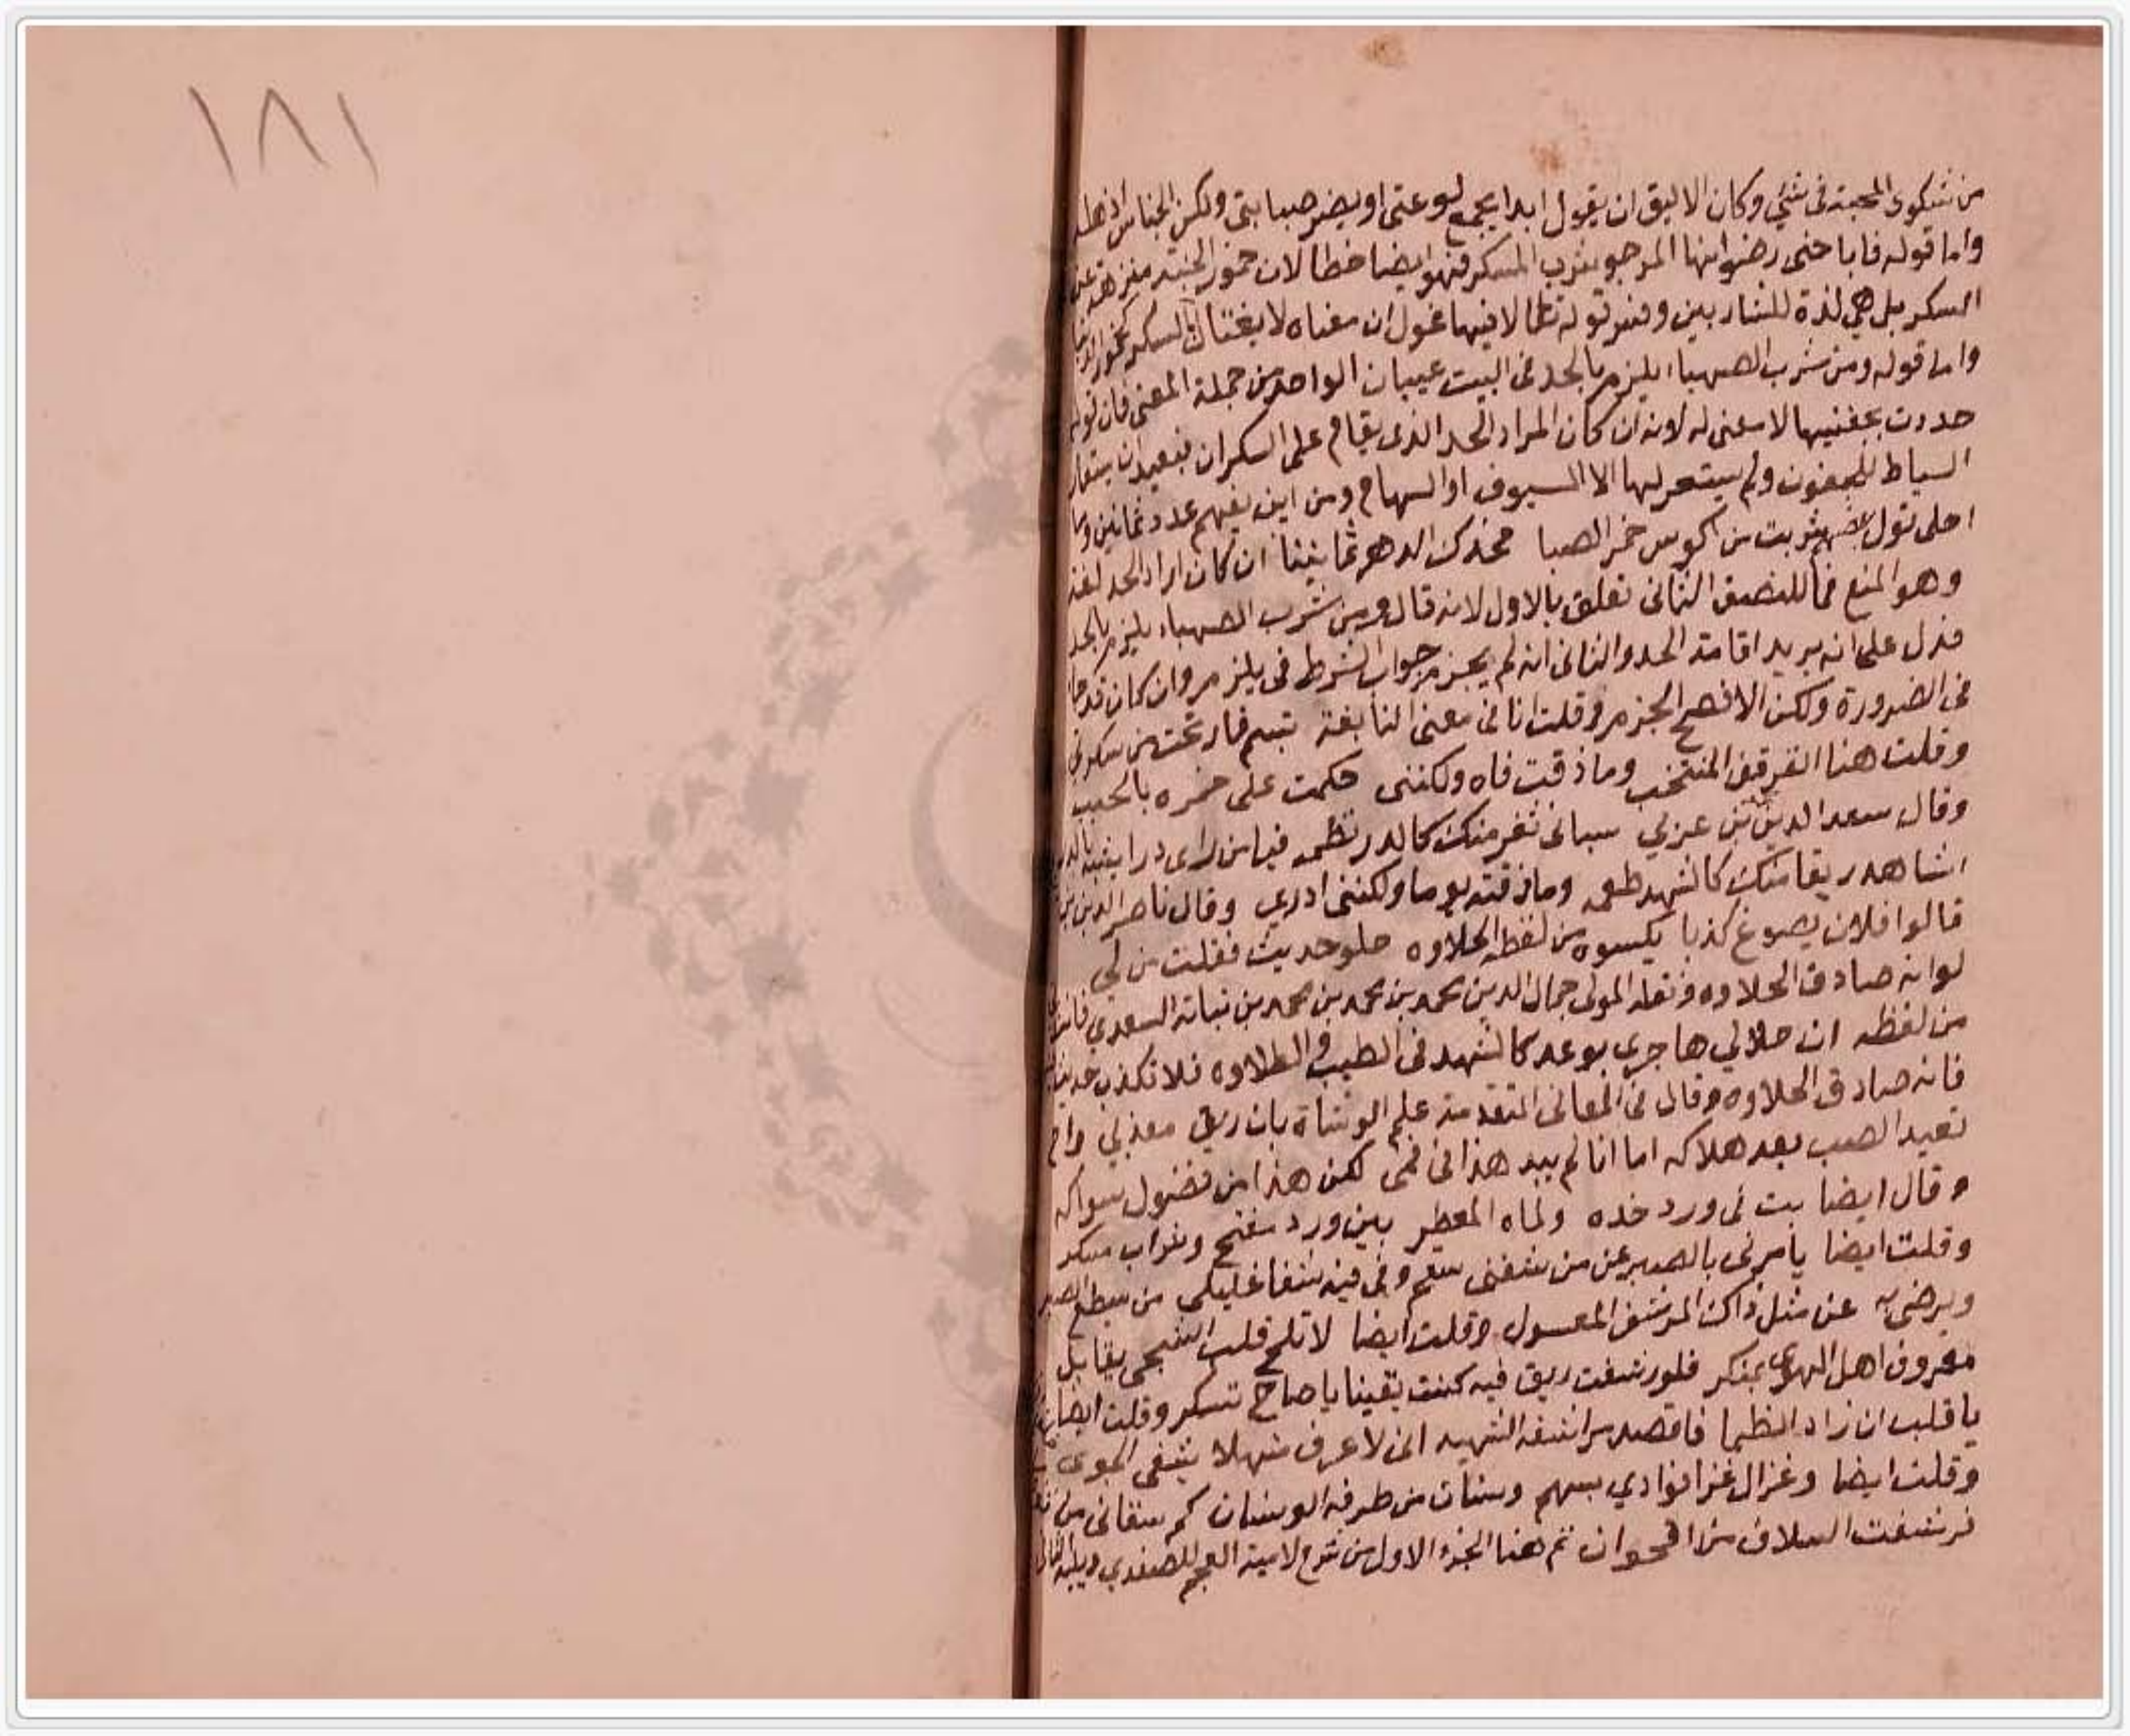 من شكوى المحبة فى شئي وكان الاليق ان يقول ابدا يجمع لوعتى او يضر صبابتى ولكن الجناس
واما قوله فاباحنى رضوانها المرجو شرب المسكر فهو ايضا خطا لان خمور الجنة منزهة عن
السكر بل هي لذة للشاربين وفسر قوله تعالى لا فيها غول ان معناه لا يغتال بالسكر كخمور الدنيا
واما قوله ومن شرب الصهباء يلزم بالحد فى البيت عيبان الواحد من جملة المعنى فان قوله
حددت بجفنيها لا معنى له لانه ان كان المراد الحد الذى يقام على السكران فبعيد ان يستعار
السياط للجفون ولم يستعر لها الا السيوف او السهام ومن اين يفهم عدد ثمانين وما
احلى قول بعضهم شربت من اكوس خمر الصبا فحدك الدهر ثمانينا ان كان اراد الحد لغة
وهو المنع فما للنصف الثانى تعلق بالاول لانه قال ومن شرب الصهباء يلزم بالحد
فدل على انه يريد اقامة الحد والثانى انه لم يجزم جواب الشرط فى يلزم وان كان قد جا
فى الضرورة ولكن الافصح الجزم وقلت انا فى معنى النابغة تبسم فارتحت من سكرتى
وقلت هنا القرقف المنتخب وما ذقت فاه ولكننى حكمت على خمره بالحبب
وقال سعد الدين بن عربي سبانى ثغر منك كالدر نظمه فيا من راى درا يشبه بالدر
اشاهد ريقا منك كالشهد طعمه وما ذقته يوما ولكننى ادري وقال ناصر الدين بن
قالوا فلان يصوغ كذبا يكسوه من لفظه الحلاوه حلو حديث فقلت من لي
لو انه صادق الحلاوه ونقله المولى جمال الدين محمد بن محمد بن محمد بن نباتة السعدي
من لفظه ان حلالي هاجرى بوعد كالشهد فى الطيب والطلاوه فلا تكذب حديث
فانه صادق الحلاوه وقال فى المعانى المتقدمة علم الوشاة بان ريق معذبي راح
تعيد الصب بعد هلاكه اما انا لم يبد هذا فى فمى لكن هذا من فضول سواكه
وقال ايضا بت فى ورد خده ولماه المعطر بين ورد مفتح وشراب مسكر
وقلت ايضا يامرنى بالصبر عن من شفنى سقم وفى فيه شفا غليلى من يسطع الصبر
ويرضى به عن مثل ذاك المرشف المعسول وقلت ايضا لا تلح قلب الشجى يقابل
معروف اهل الهوى بمنكر فلو رشفت ريق فيه كنت يقينا يا صاح تسكر وقلت ايضا
يا قلب ان زاد الظما فاقصد مراشفه الشهيه انى لاعرف منهلا يشفى الجوى
وقلت ايضا وغزال غزا فوادي بسهم وسنات من طرفه الوسنان كم سقانى من
فرشفت السلاف من اقحوان تم هنا الجزء الاول من شرح لامية العجم للصفدي ويليه الثانى
١٨١